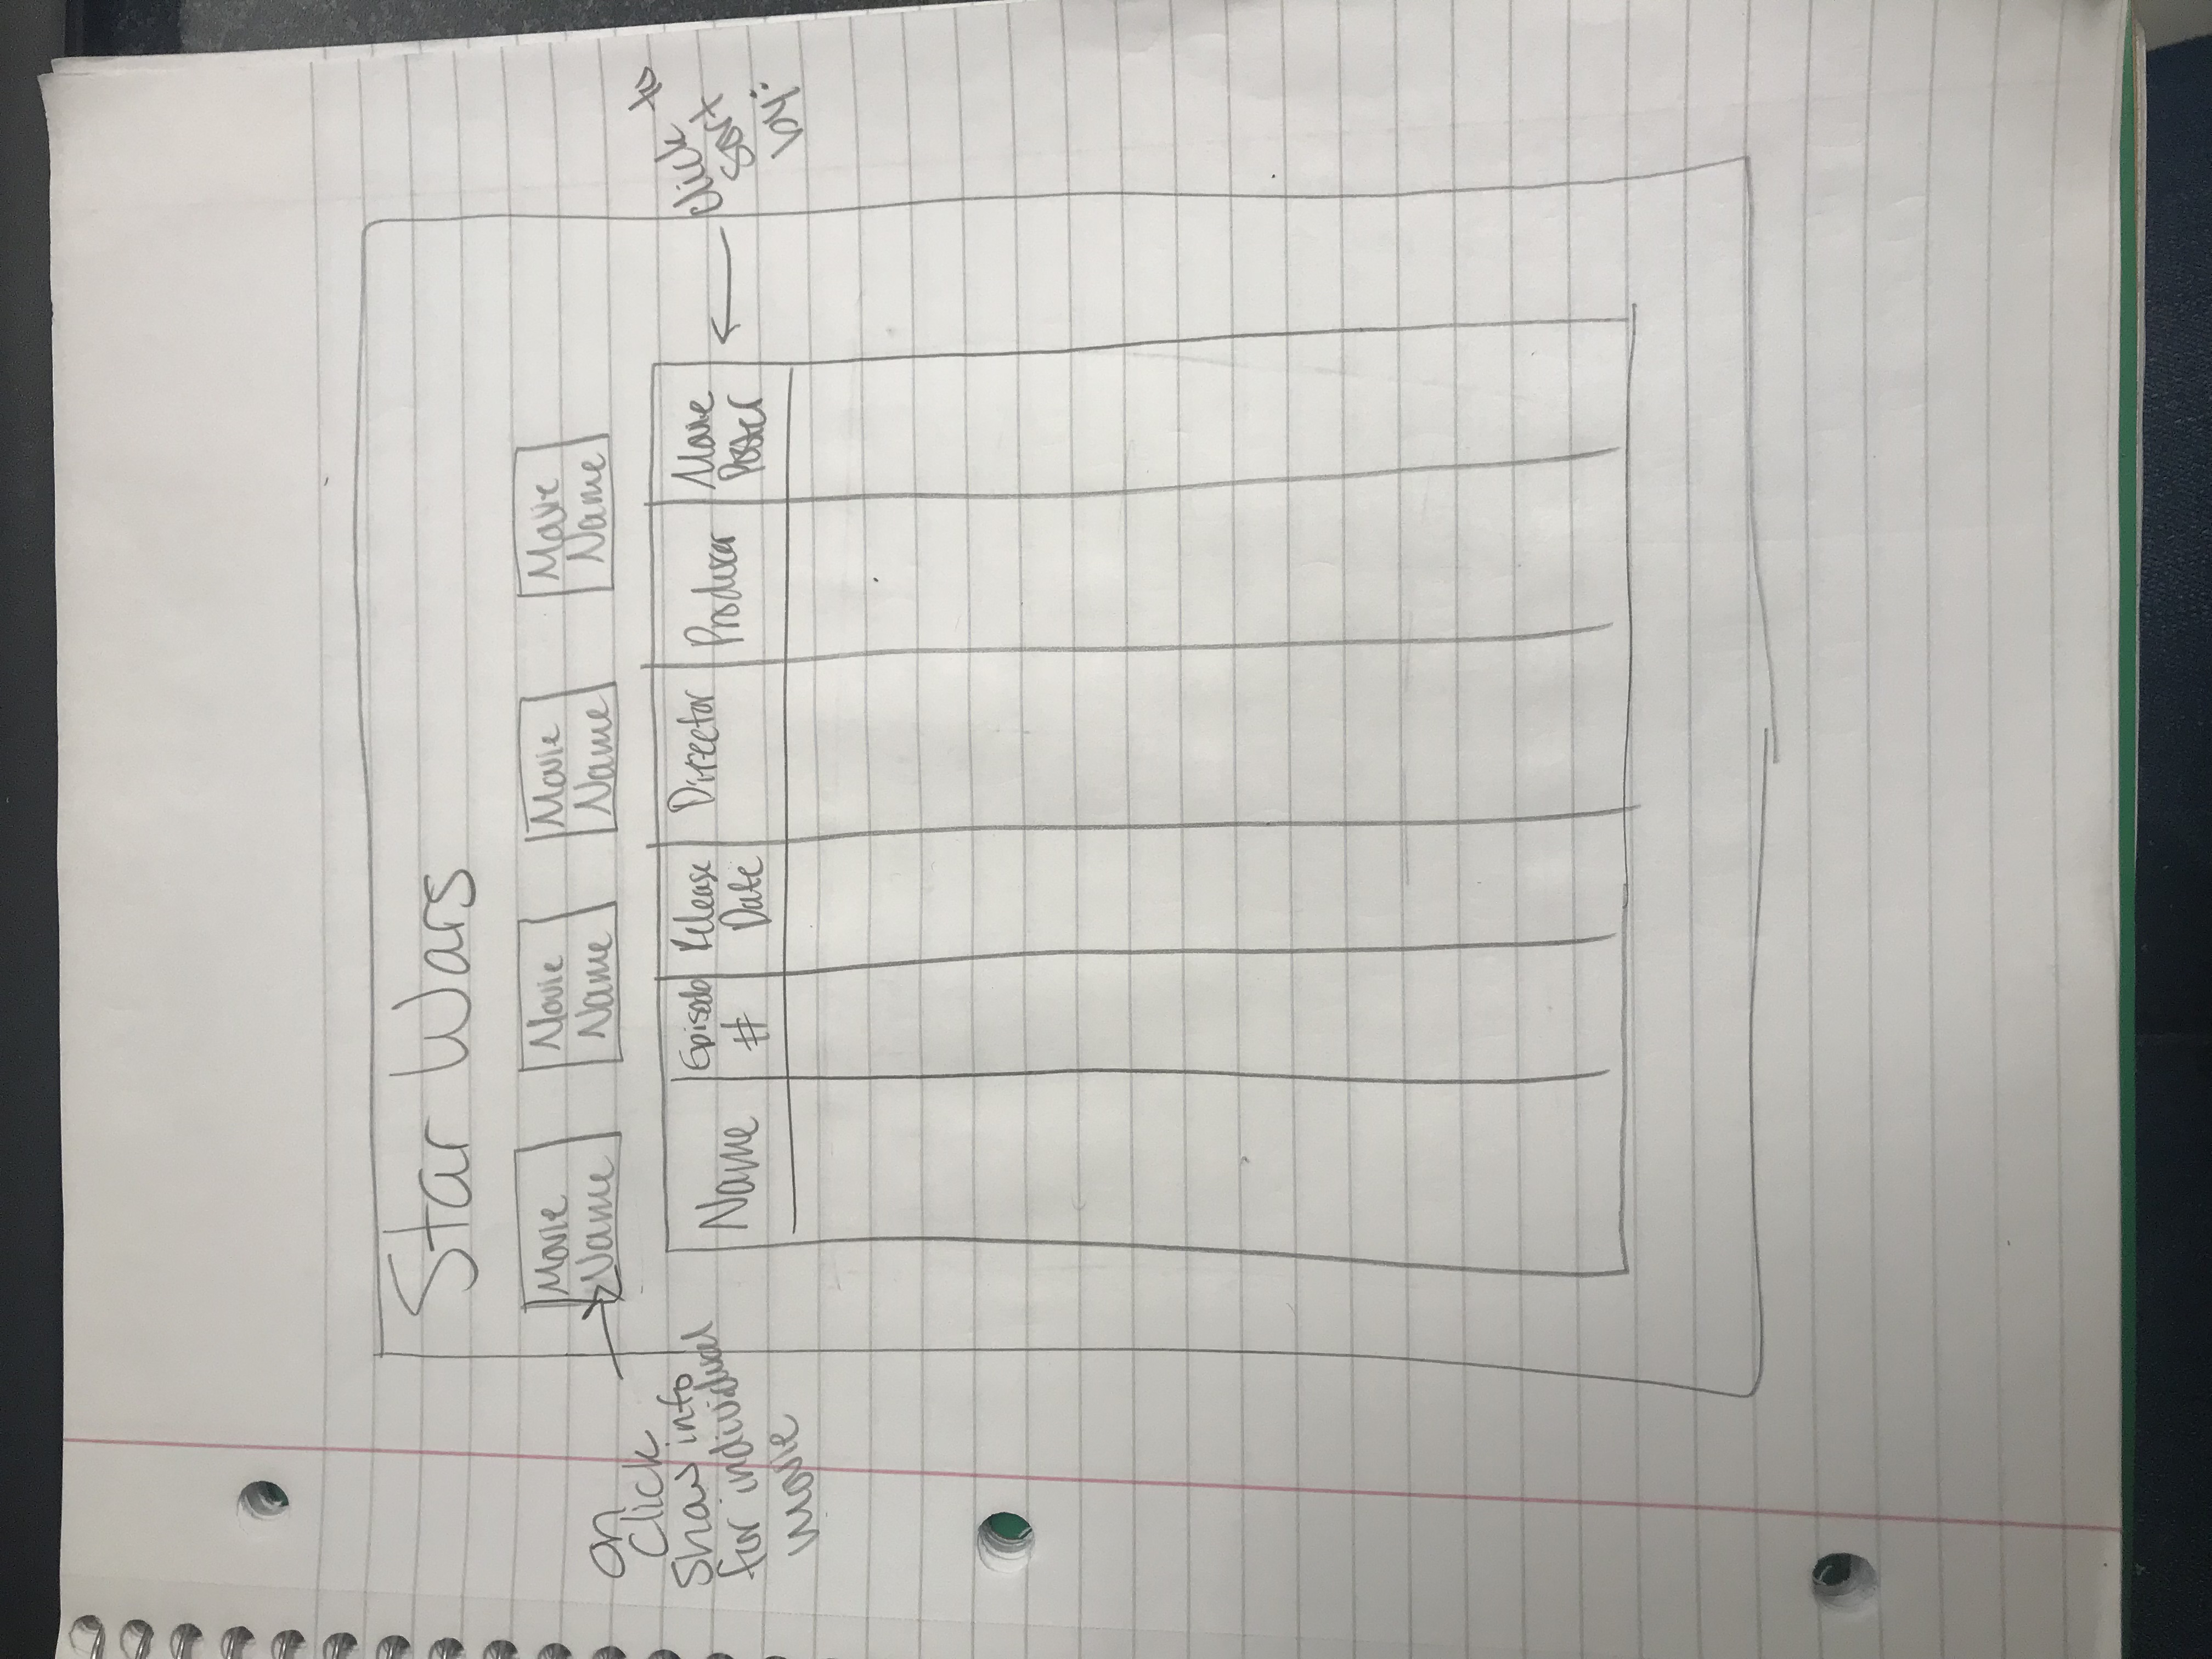 Star Wars
Movie
Name
Movie
Name
Movie
Name
Movie
Name
on
Click
Show info
for individual
movie
Name
Episode
#
Release
Date
Director
Producer
Movie
Poster
click to
sort
by: